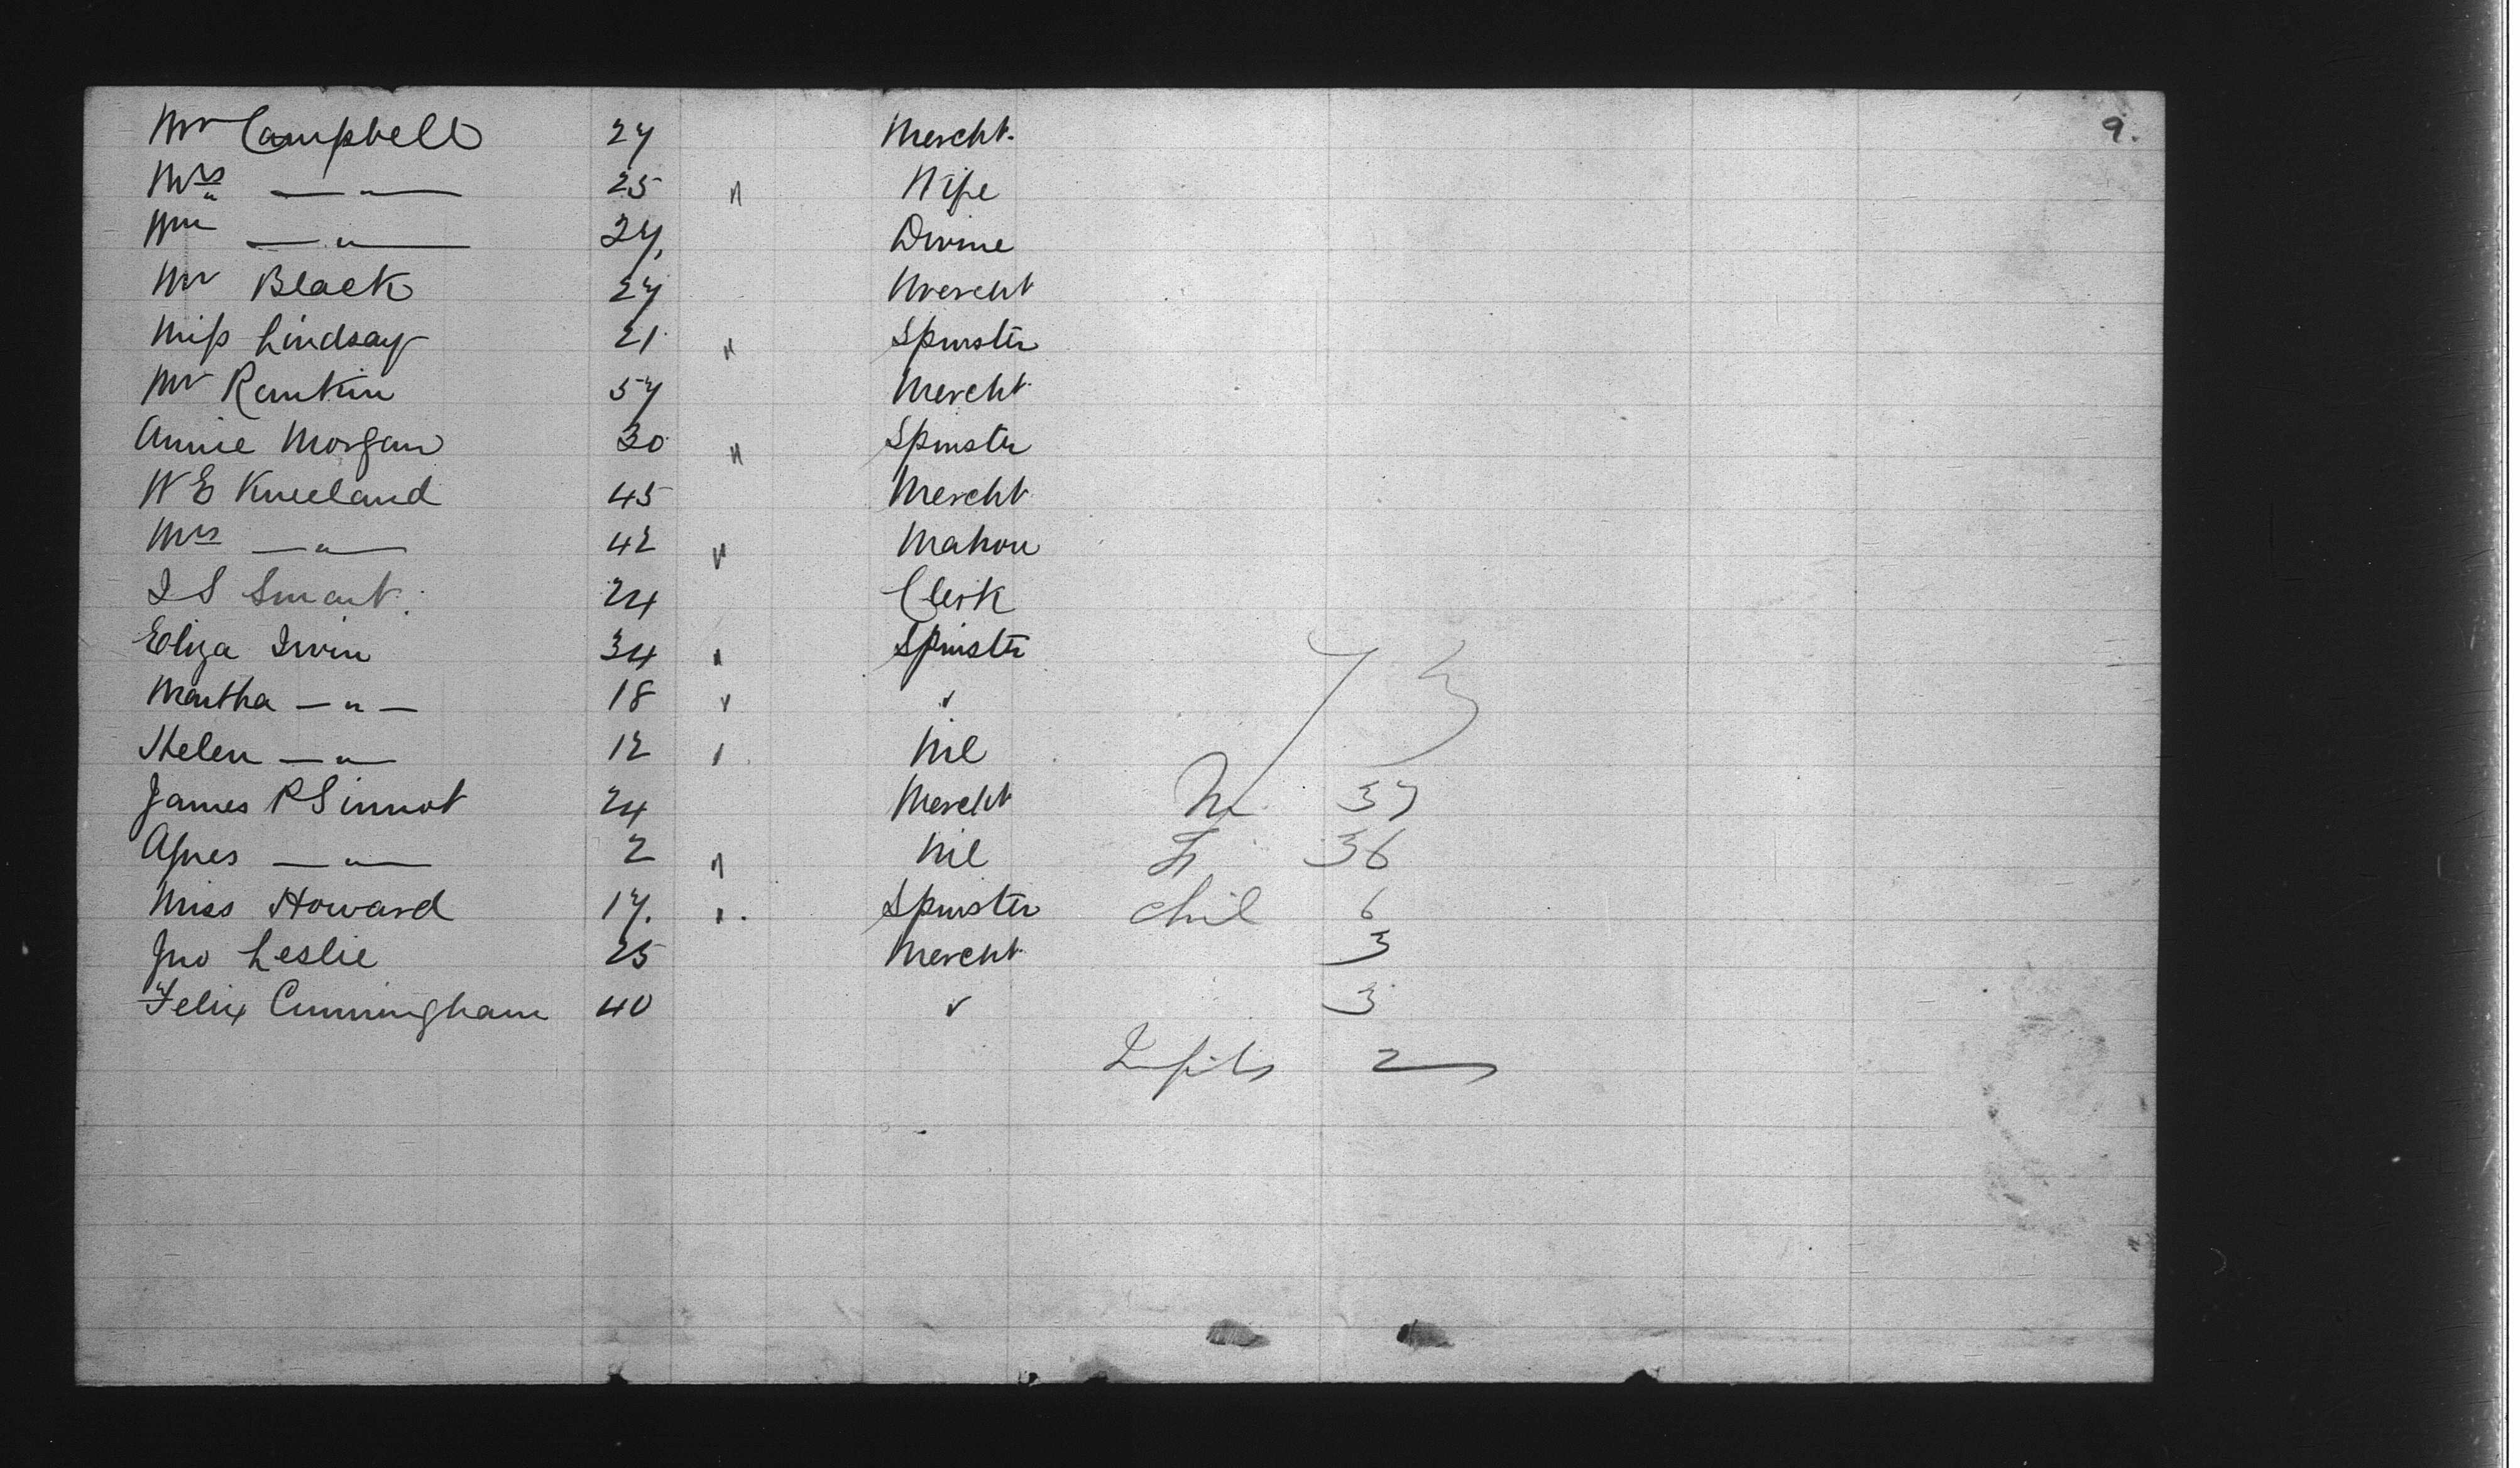 Mr Campbell 27 Mercht. 9.
Mrs — " — 25 " Wife
Wm — " — 27, Divine
Mr Black 27 Mercht
Miss Lindsay 21 " Spinster
Mr Rankin 57 Mercht
Annie Morgan 30 " Spinster
W E Kneeland 45 Mercht
Mrs — " — 42 " Matron
J S Smart. 24 Clerk
Eliza Irvin 34 " Spinster
Martha — " — 18 " "
Helen — " — 12 " Nil
James R Sinnot 24 Mercht M 37
Agnes — " — 2 " Nil F 36
Miss Howard 17. " Spinster Chil 6
Jno Leslie 25 Mercht 3
Felix Cunningham 40 " 3
2